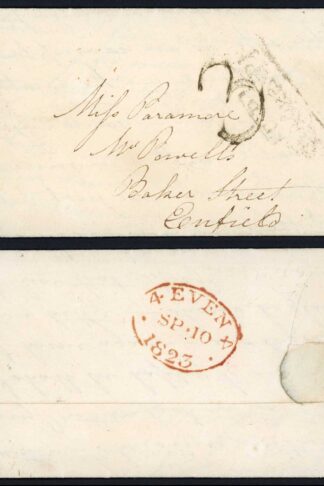 3
Miss Paramore
Mr Powells
Baker Street
Enfield
4 EVEN 4
SP.10
1823